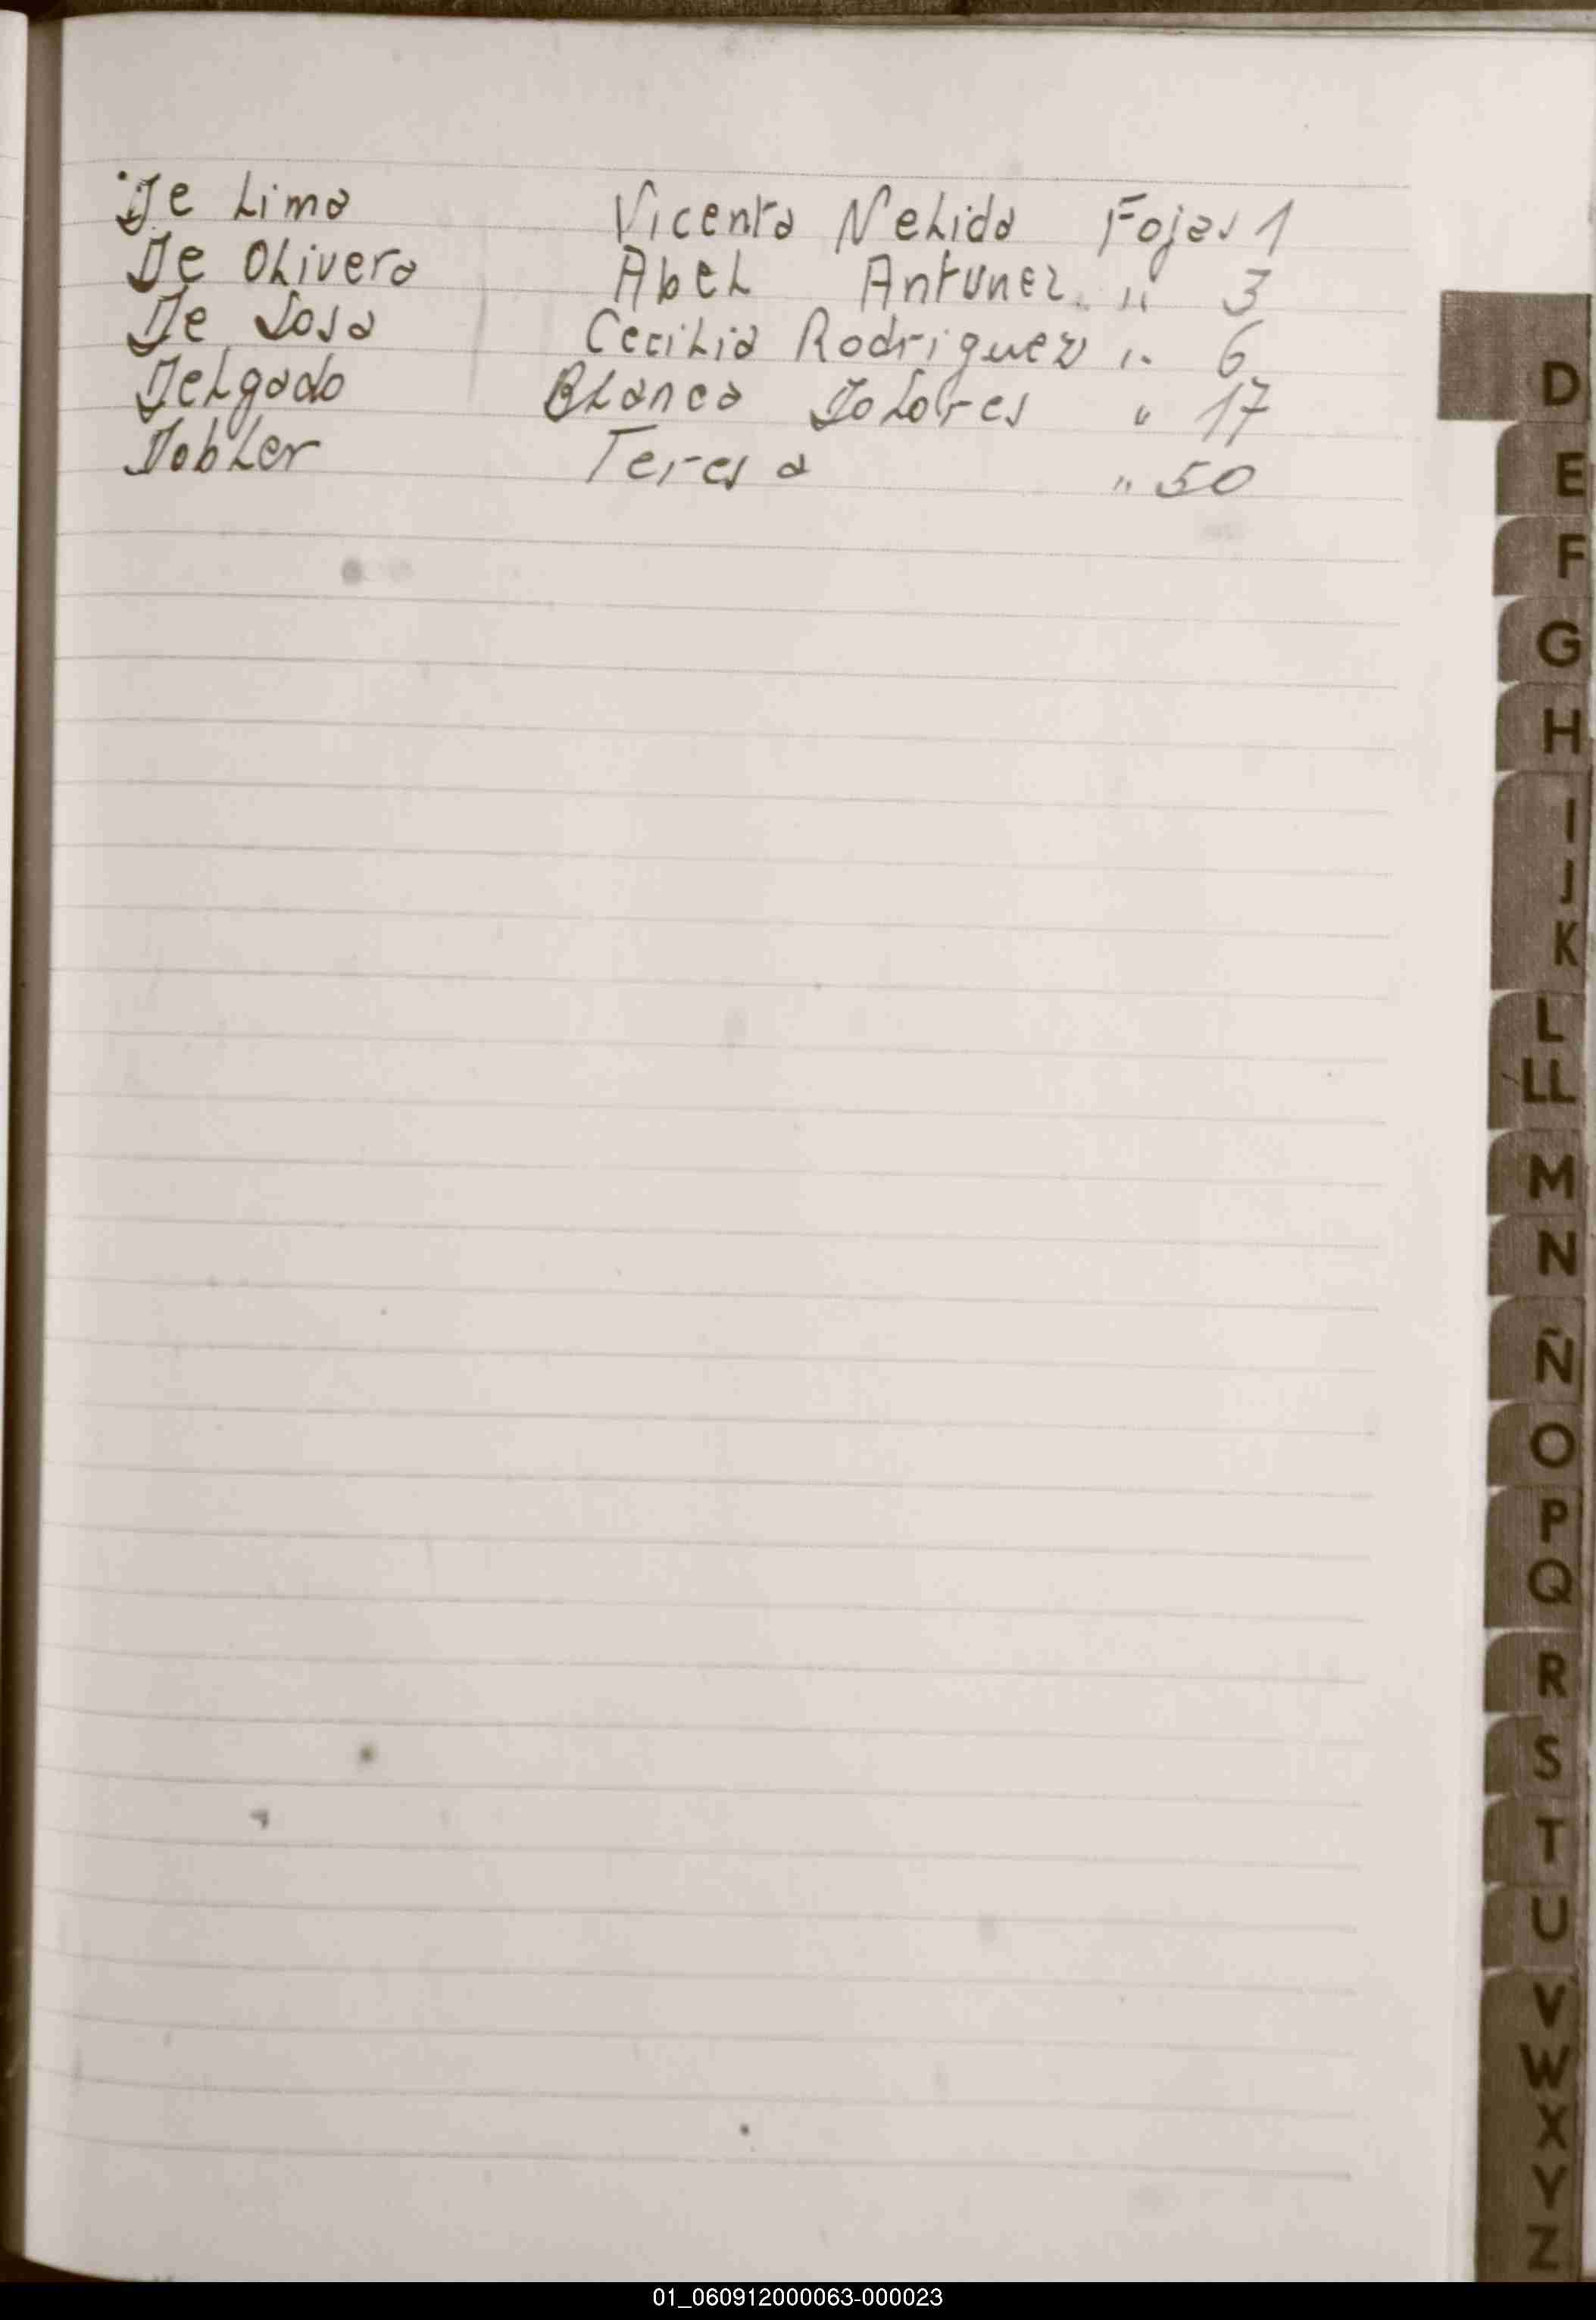 De Lima Vicenta Nelida Fojas 1
De Olivera Abel Antunez. " 3
De Sosa Cecilia Rodriguez " 6
Delgado Blanca Dolores " 17
Dobler Teresa " 50
D
E
F
G
H
I
J
K
L
LL
M
N
Ñ
O
P
Q
R
S
T
U
V
W
X
Y
Z
01_060912000063-000023